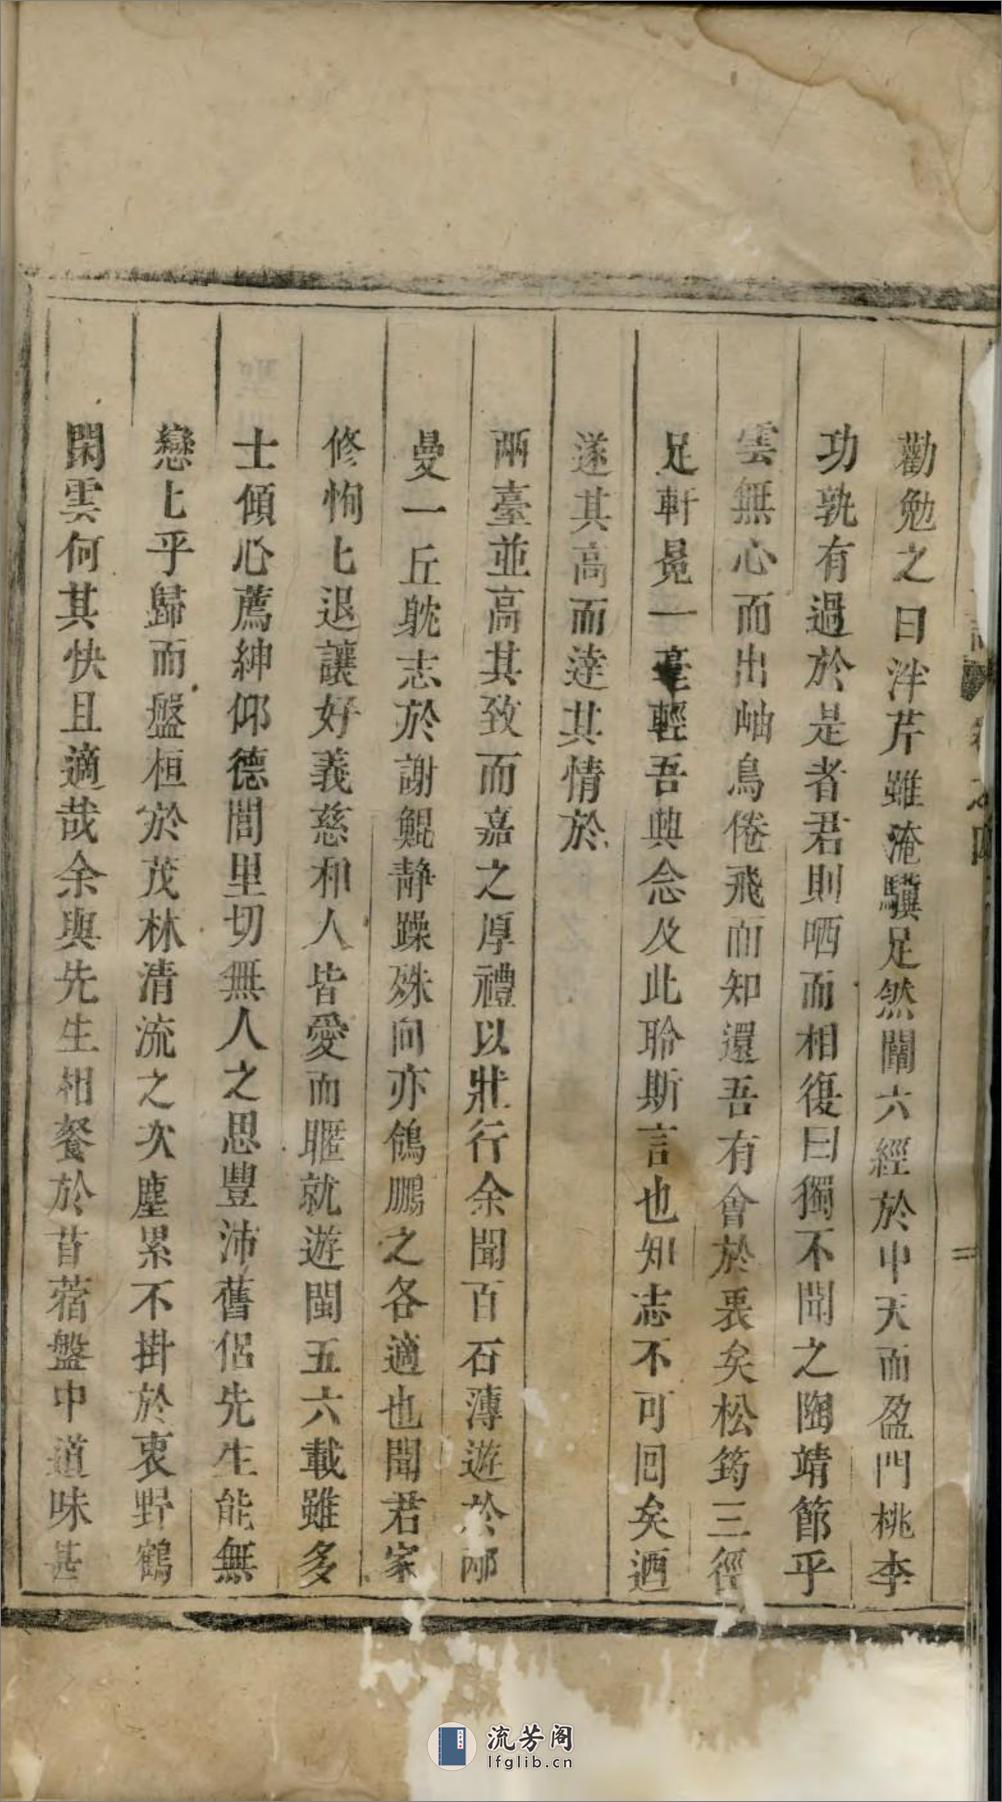 勸勉之曰泮芹雖淹驥足然闡六經於中天而盈門桃李
功孰有過於是者君則哂而相復曰獨不聞之陶靖節乎
雲無心而出岫鳥倦飛而知還吾有會於衷矣松筠三徑
足軒冕一毫輕吾興念及此聆斯言也知志不可回矣迺
遂其高而達其情於
兩臺並高其致而嘉之厚禮以壯行余聞百石薄遊於邴
曼一丘躭志於謝鯤靜躁殊向亦鴿鵬之各適也聞君家
修恂匕退讓好義慈和人皆愛而暱就遊閩五六載雖多
士傾心薦紳仰德閭里切無人之思豐沛舊侶先生能無
戀匕乎歸而盤桓於茂林清流之次塵累不掛於衷野鶴
閑雲何其快且適哉余與先生相餐於苜蓿盤中道味甚
卷之四
二
流芳阁
lfglib.cn